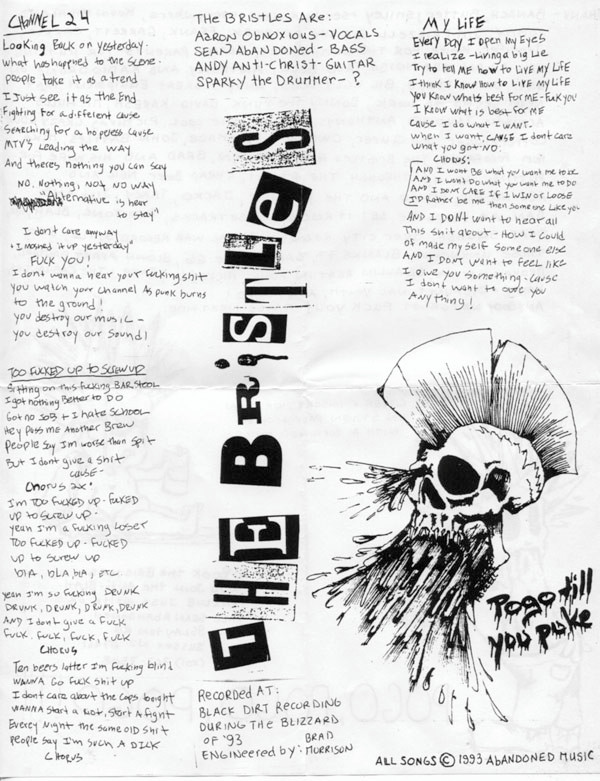 CHANNEL 24
Looking Back on yesterday.
what has happed to the scene.
people take it as a trend
I Just see it as the End
Fighting for a different cause
Searching for a hopeless cause
MTV's Leading the WAY
And theres nothing you can say
NO, Nothing, Not NO WAY
"Alternative is hear
to stay"
I dont care anyway
"I mowed it up yesterday"
FUCK YOU!
I dont wanna hear your fucking shit
you watch your channel AS punk burns
to the ground!
you destroy our music -
you destroy our Sound!
TOO FUCKED UP TO SCREW UP
Sitting on this fucking BAR STOOL
I got nothing Better to DO
Got no JOB + I hate SCHOOL
Hey Pass me Another Brew
People Say I'm worse than spit
But I dont give a shit
CAUSE-
Chorus 2x:
I'm TOO FUCKED UP - FUCKED
UP to SCREW UP -
yeah I'm a fucking Loser
TOO FUCKED UP - FUCKED
UP to SCREW UP
blA, blA, blA, ETC
yeah I'm so fucking DRUNK
DRUNK, DRUNK, DRUNK, DRUNK
And I dont give a FUCK
FUCK, FUCK, FUCK, FUCK
CHORUS
Ten beers latter I'm fucking blind
WANNA GO FUCK shit up
I dont care about the cops tonight
WANNA Start a Riot, Start A fight
Everey Night the same old shit
people say I'm such A DICK
CHORUS
THE BRISTLES ARE:
AARON OBNOXIOUS - VOCALS
SEAN ABANDONED - BASS
ANDY ANTI-CHRIST - GUITAR
SPARKY THE DRUMMER - ?
THE BRiSTLeS
RECORDED AT:
BLACK DIRT RECORDING
DURING THE BLIZZARD
OF '93
ENGINEERED by: BRAD MORRISON
MY LIFE
EVERY DAY I Open My EYES
I realize - Living a big Lie
Try to tell ME how to LIVE MY LIFE
I think I Know how to LIVE MY LIFE
You Know whats best for ME - Fuck you!
I Know what is best for ME
Cause I do what I WANT-
when I want, CAUSE I dont care
what you got - NO.
CHORUS:
AND I wont Be what you want me to be
AND I wont Do what you want me to DO
AND I DONT CARE IF I WIN or LOOSE
I'D Rather be me then someone Like you
AND I DONT want to hear all
This shit about - HOW I could
of made my self Someone else
AND I DONT want to feel like
I owe you something - CAUSE
I dont want to owe you
Anything!
Pogo till
you puke
ALL SONGS © 1993 AbANDONED MUSIC